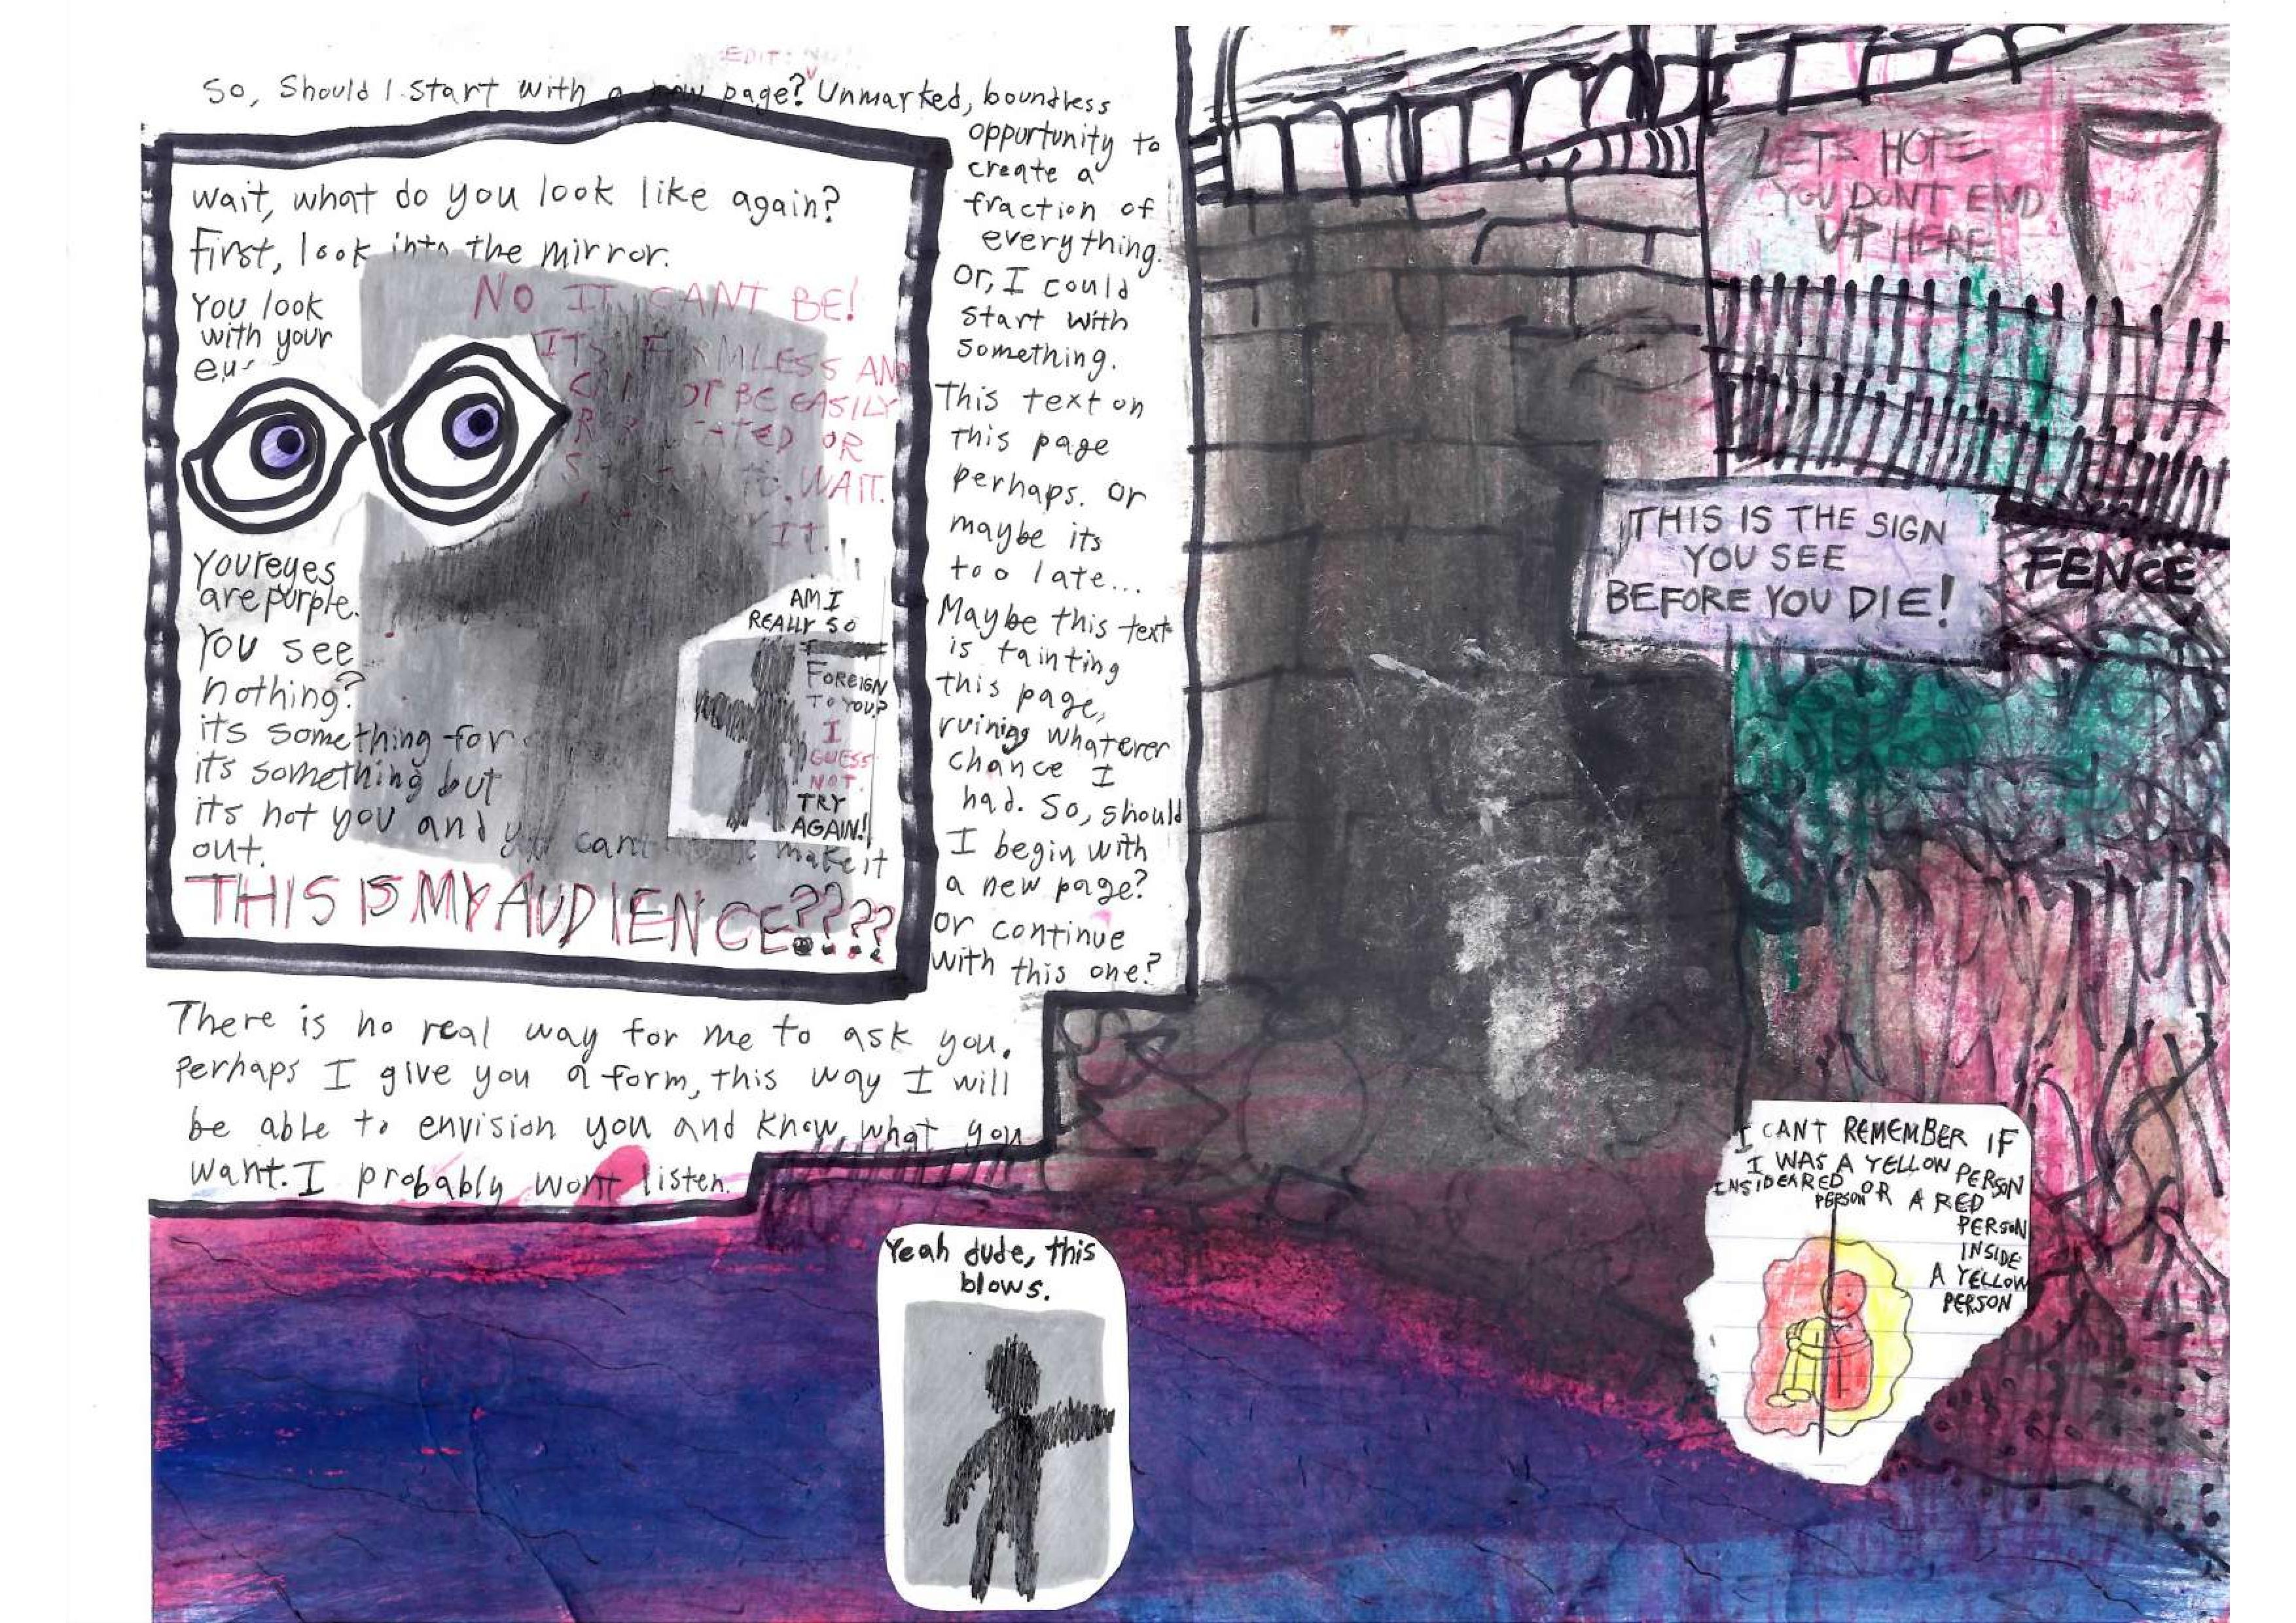 EDIT: 
So, Should I start with a new page? Unmarked, boundless
opportunity to
create a
fraction of
everything.
Or, I could
start with
something.
This text on
this page
perhaps. Or
maybe its
too late...
Maybe this text
is tainting
this page,
ruining whatever
chance I
had. So, should
I begin with
a new page?
Or continue
with this one?
wait, what do you look like again?
First, look into the mirror.
You look
with your
NO IT CANT BE!
ITS FORMLESS AND
BE EASILY
OR
WAIT.
IT.
Your eyes
are purple.
You see
nothing?
its something for
its something but
its not you and you cant make it
out.
AM I
REALLY SO
FOREIGN
TO YOU?
I
GUESS
NOT.
TRY
AGAIN!
THIS IS MY AUDIENCE????
There is no real way for me to ask you.
Perhaps I give you a form, this way I will
be able to envision you and know what you
want. I probably wont listen.
LETS HOPE
YOU DONT END
UP HERE
THIS IS THE SIGN
YOU SEE
BEFORE YOU DIE!
FENCE
Yeah dude, this
blows.
I CANT REMEMBER IF
I WAS A YELLOW PERSON
INSIDE A RED PERSON OR A RED
PERSON
INSIDE
A YELLOW
PERSON